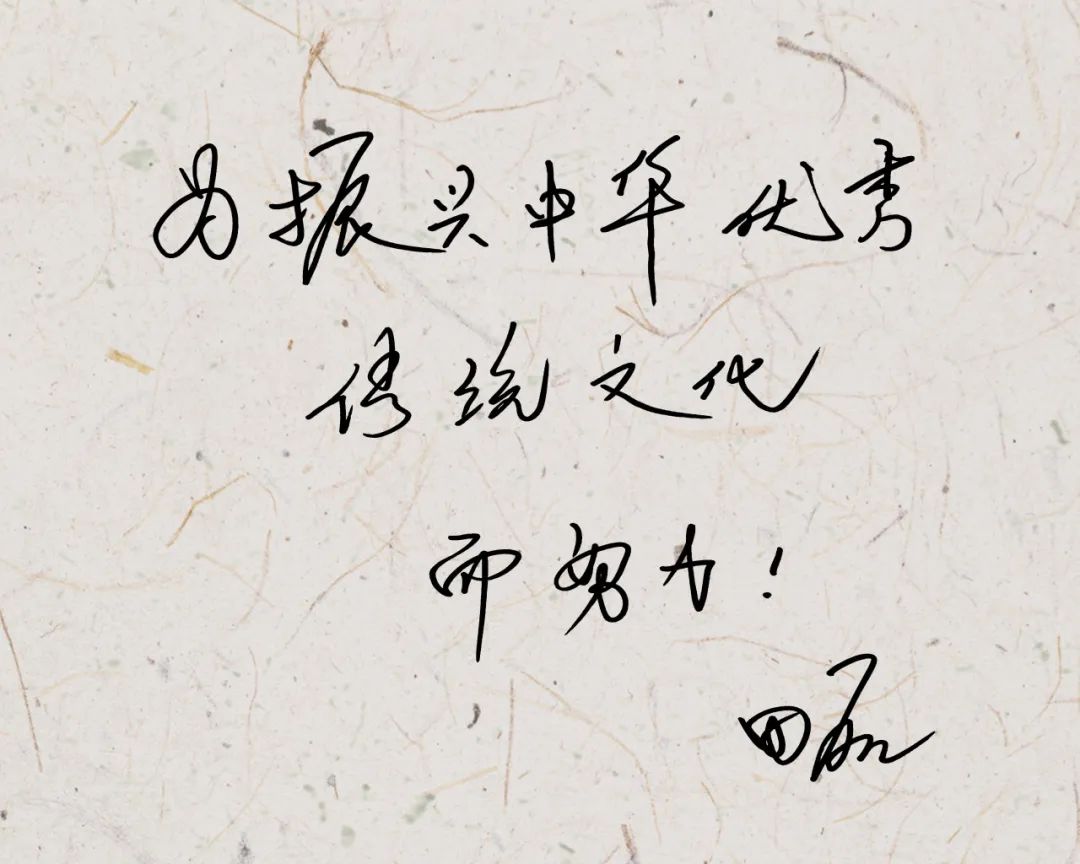 为振兴中华优秀
传统文化
而努力!
田